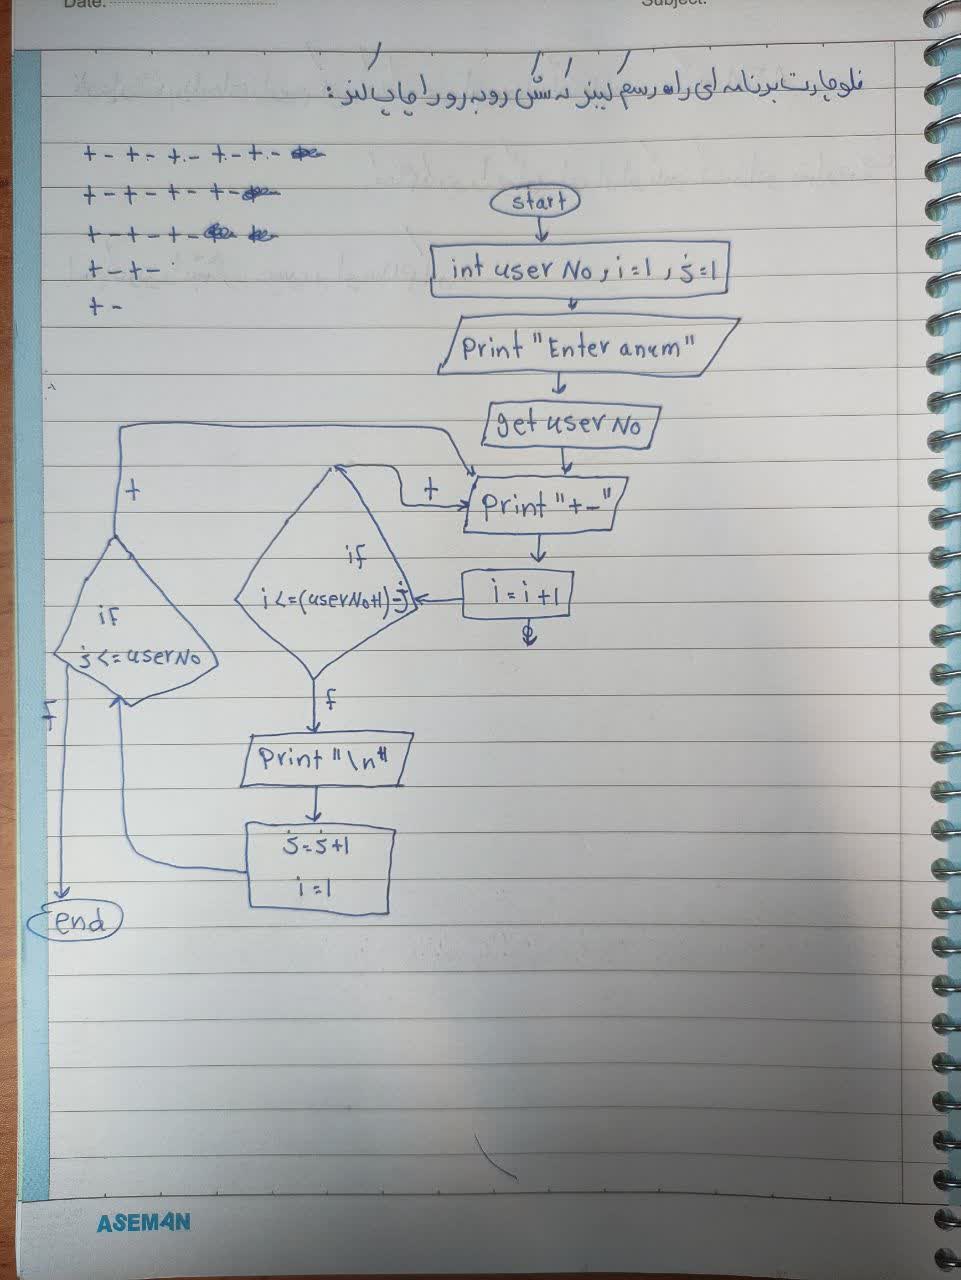 Date:
Subject:
فلوچارت برنامه ای را رسم کنید که شکل روبه رو را چاپ کند:
+ - + - + - + - + -
+ - + - + - + -
+ - + - + -
+ - + -
+ -
start
int user No, i=1, j=1
Print "Enter a num"
get user No
Print "+-"
i = i+1
t
if
i <= (userNo+1)-j
f
Print "\n"
j=j+1
i=1
t
if
j <= userNo
f
end
ASEMAN